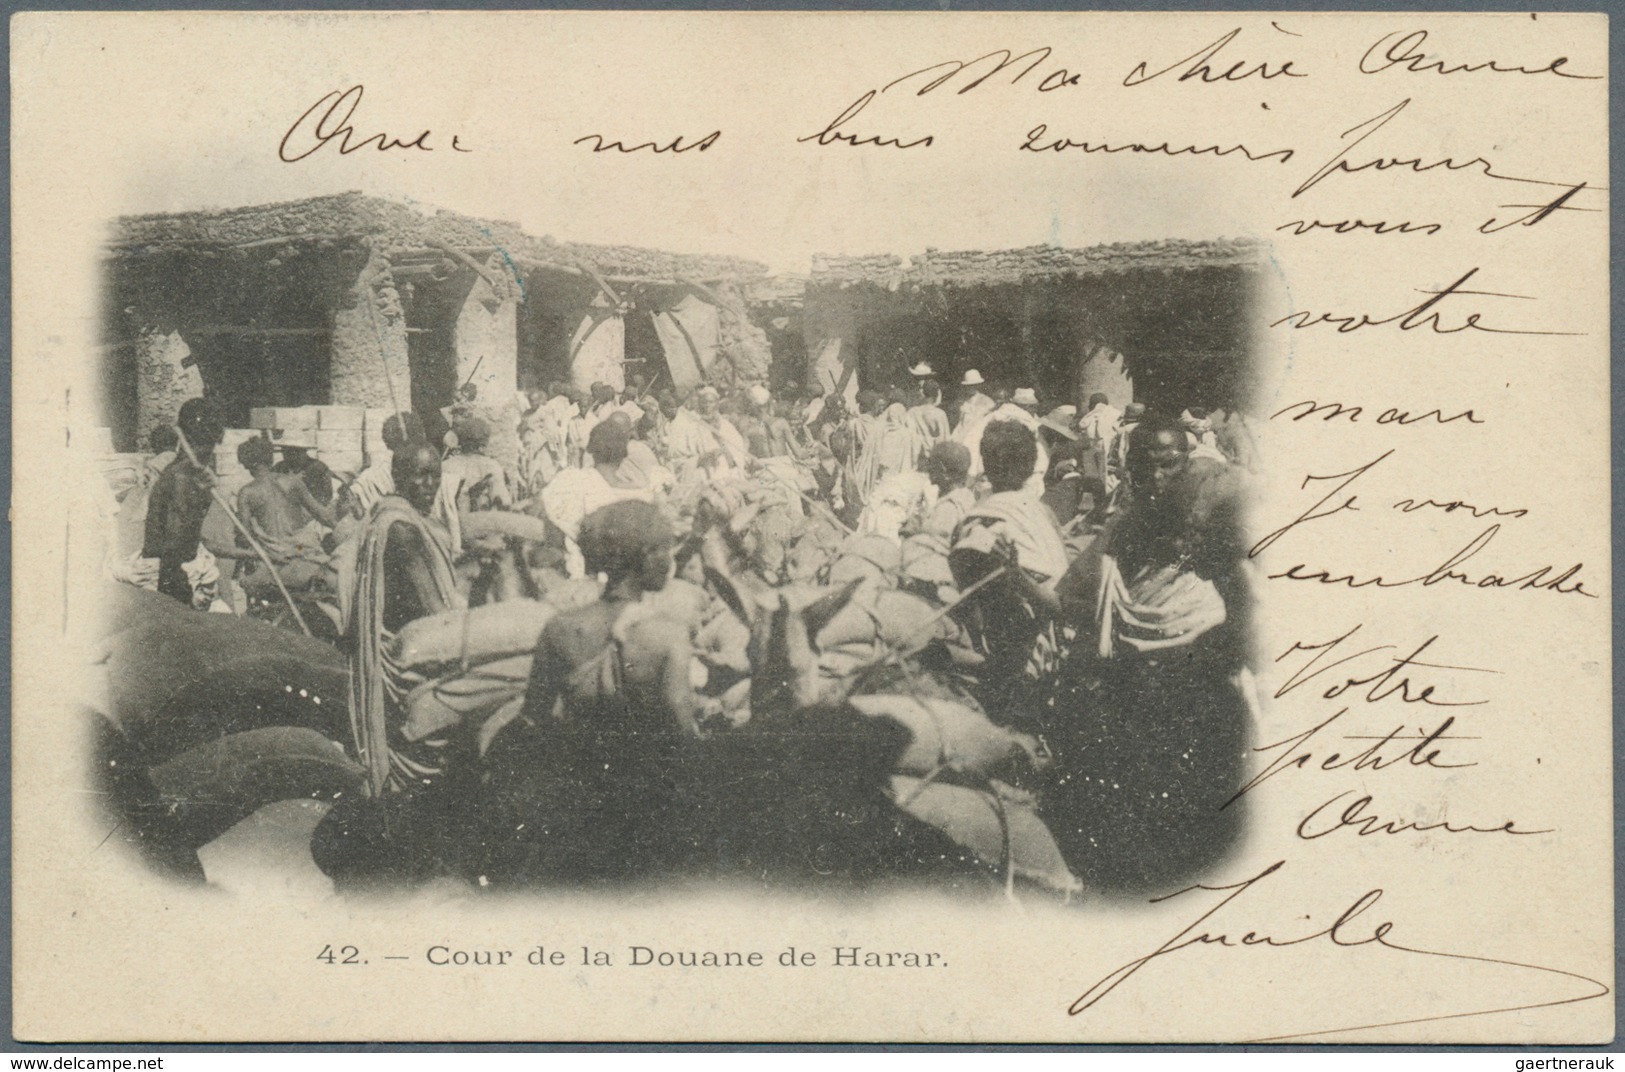 Ma chère Amie
Avec mes bons souvenirs pour
vous et
votre
mari
Je vous
embrasse
Votre
petite
Amie
Lucile
42. — Cour de la Douane de Harar.
www.delcampe.net
gaertnerauk